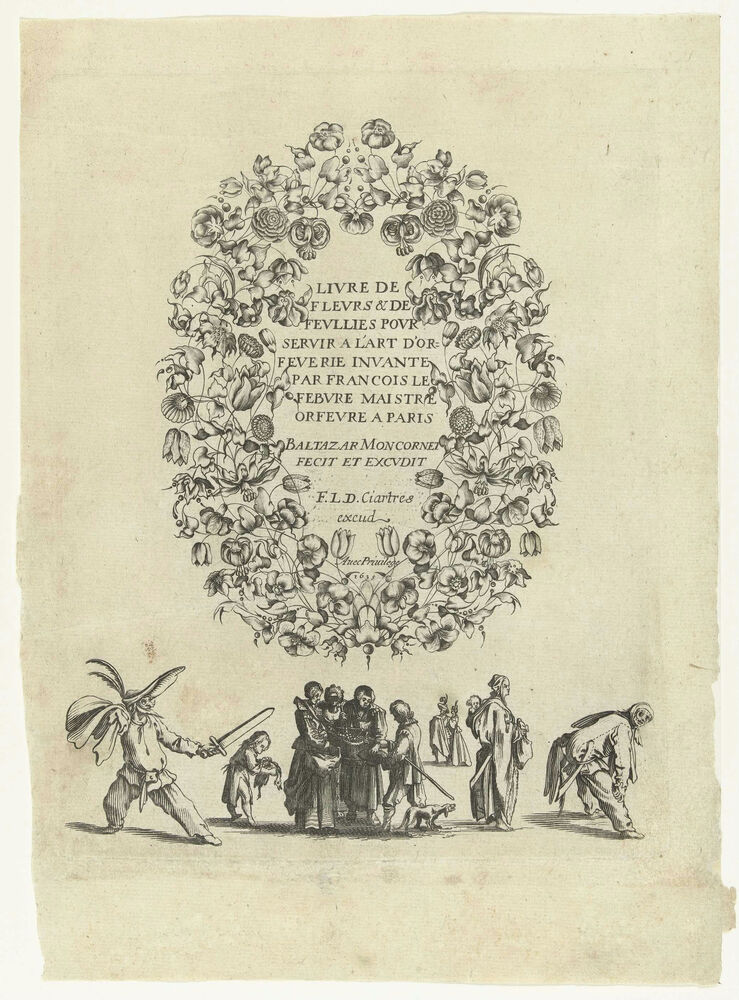 LIVRE DE
FLEVRS & DE
FEVLLIES POVR
SERVIR A L'ART D'OR=
FEVERIE INVANTE
PAR FRANCOIS LE
FEBVRE MAISTRE
ORFEVRE A PARIS
BALTAZAR MONCORNET
FECIT ET EXCVDIT
F. L. D. Ciartres
excud
Avec Privilege
1635